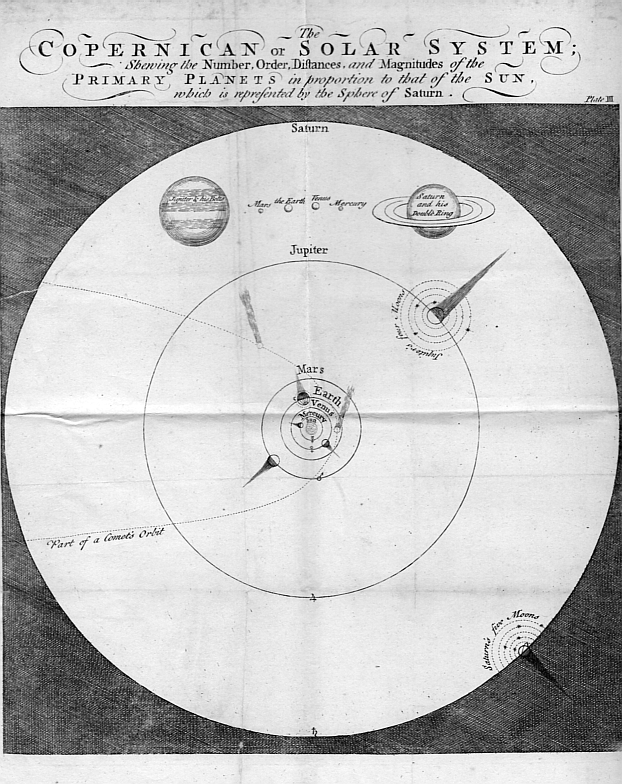 The
COPERNICAN or SOLAR SYSTEM;
Shewing the Number, Order, Diſtances, and Magnitudes of the
PRIMARY PLANETS in proportion to that of the SUN,
which is repreſented by the Sphere of Saturn.
Plate III
Saturn
Jupiter & his Belts
Mars
the Earth
Venus
Mercury
Saturn
and his
Double Ring
Jupiter
Jupiter's four Moons
Mars
Earth
Venus
Mercury
♂
Part of a Comet's Orbit
♃
Saturn's five Moons
♄